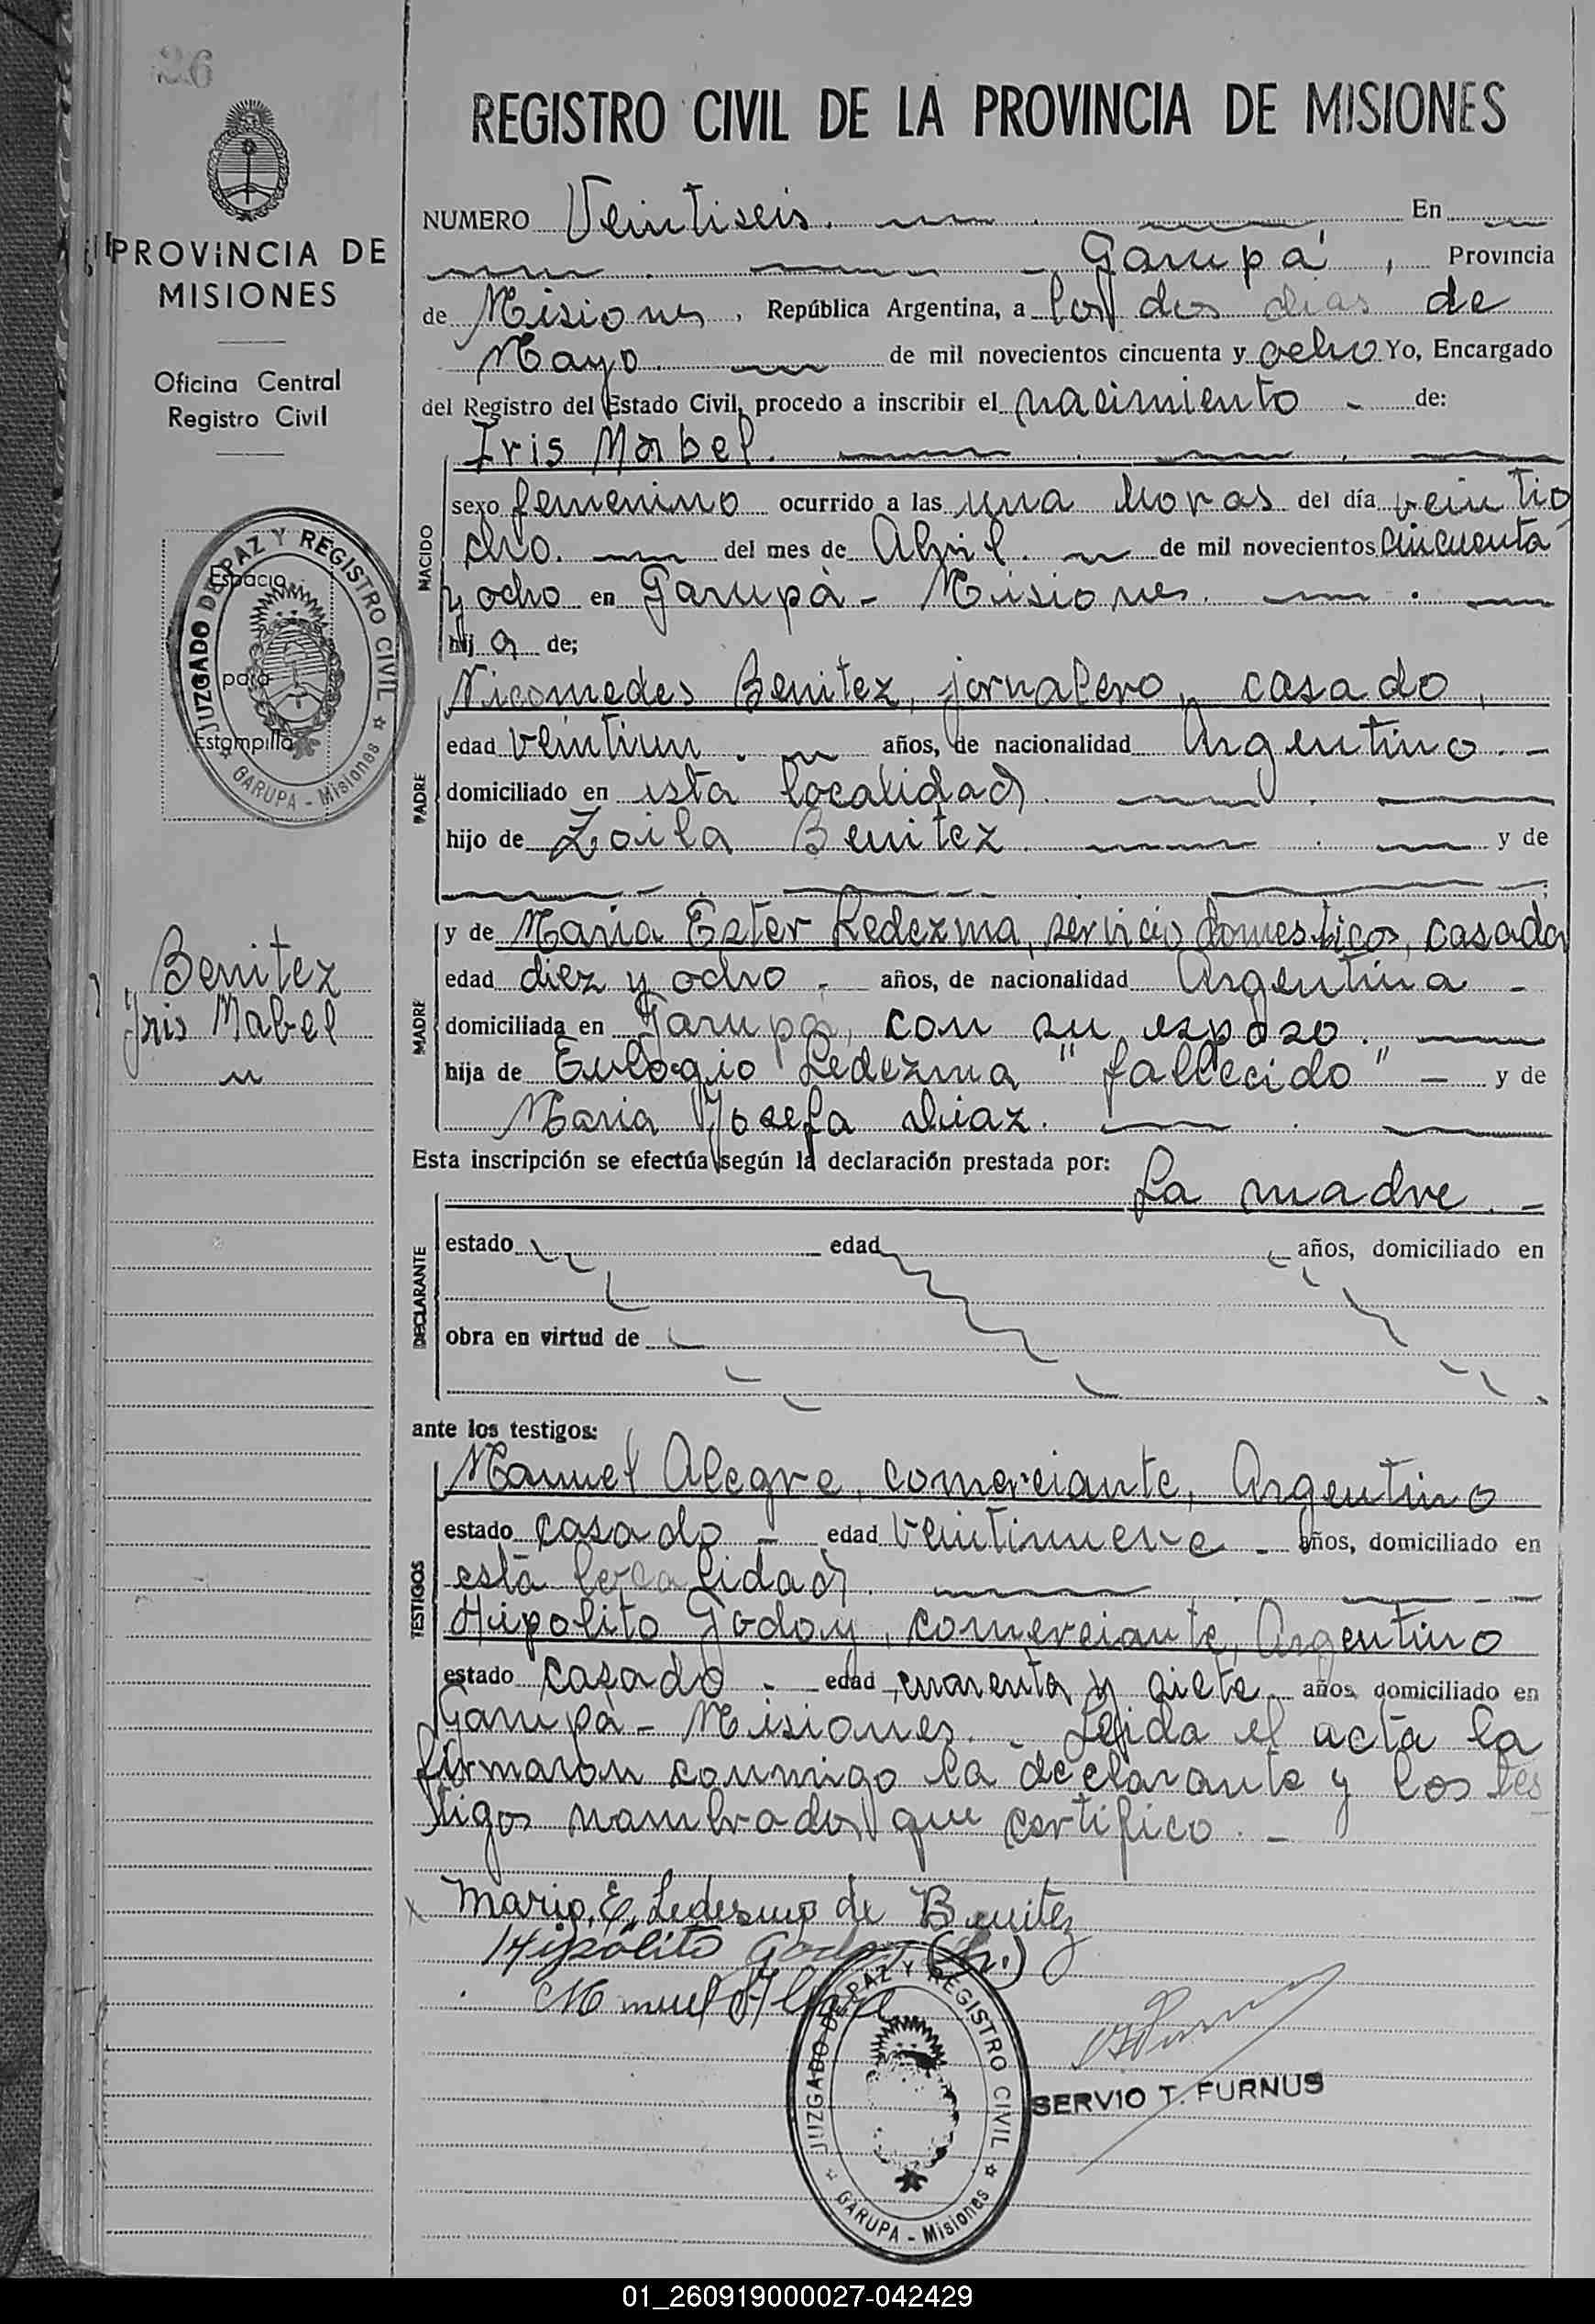 26
REGISTRO CIVIL DE LA PROVINCIA DE MISIONES
PROVINCIA DE
MISIONES
Oficina Central
Registro Civil
JUZGADO DE PAZ Y REGISTRO CIVIL
GARUPA - Misiones
Espacio
para
Estampilla
Benitez
Iris Mabel
NUMERO Veintiseis. En
Garupá, Provincia
de Misiones, República Argentina, a los dos dias de
Mayo de mil novecientos cincuenta y ocho Yo, Encargado
del Registro del Estado Civil, procedo a inscribir el nacimiento - de:
Iris Mabel.
NACIDO
sexo femenino ocurrido a las una horas del día veintio
cho. del mes de Abril. de mil novecientos cincuenta
y ocho en Garupà - Misiones.
hij a de;
PADRE
Nicomedes Benitez, jornalero, casado,
edad veintiun. años, de nacionalidad Argentino. -
domiciliado en esta localidad.
hijo de Zoila Benitez. y de
MADRE
y de Maria Ester Ledezma, servicio domesticos, casada
edad diez y ocho - años, de nacionalidad Argentina -
domiciliada en Garupa, con su esposo.
hija de Eulogio Ledezma "fallecido" - y de
Maria Josefa Diaz.
Esta inscripción se efectúa según la declaración prestada por:
La madre. -
DECLARANTE
estado edad años, domiciliado en
obra en virtud de
ante los testigos:
TESTIGOS
Manuel Alegre, comerciante, Argentino
estado casado - edad veintinueve - años, domiciliado en
està localidad.
Hipolito Godoy, comerciante, Argentino
estado casado - edad cuarenta y siete años, domiciliado en
Garupà - Misiones. - Leida el acta la
firmaron conmigo la declarante y los tes
tigos nombrados que certifico. -
Maria E, Ledesma de Benitez
Hipólito Godoy (h.)
Manuel Alegre
JUZGADO DE PAZ Y REGISTRO CIVIL
GARUPA - Misiones
SERVIO T. FURNUS
01_260919000027-042429